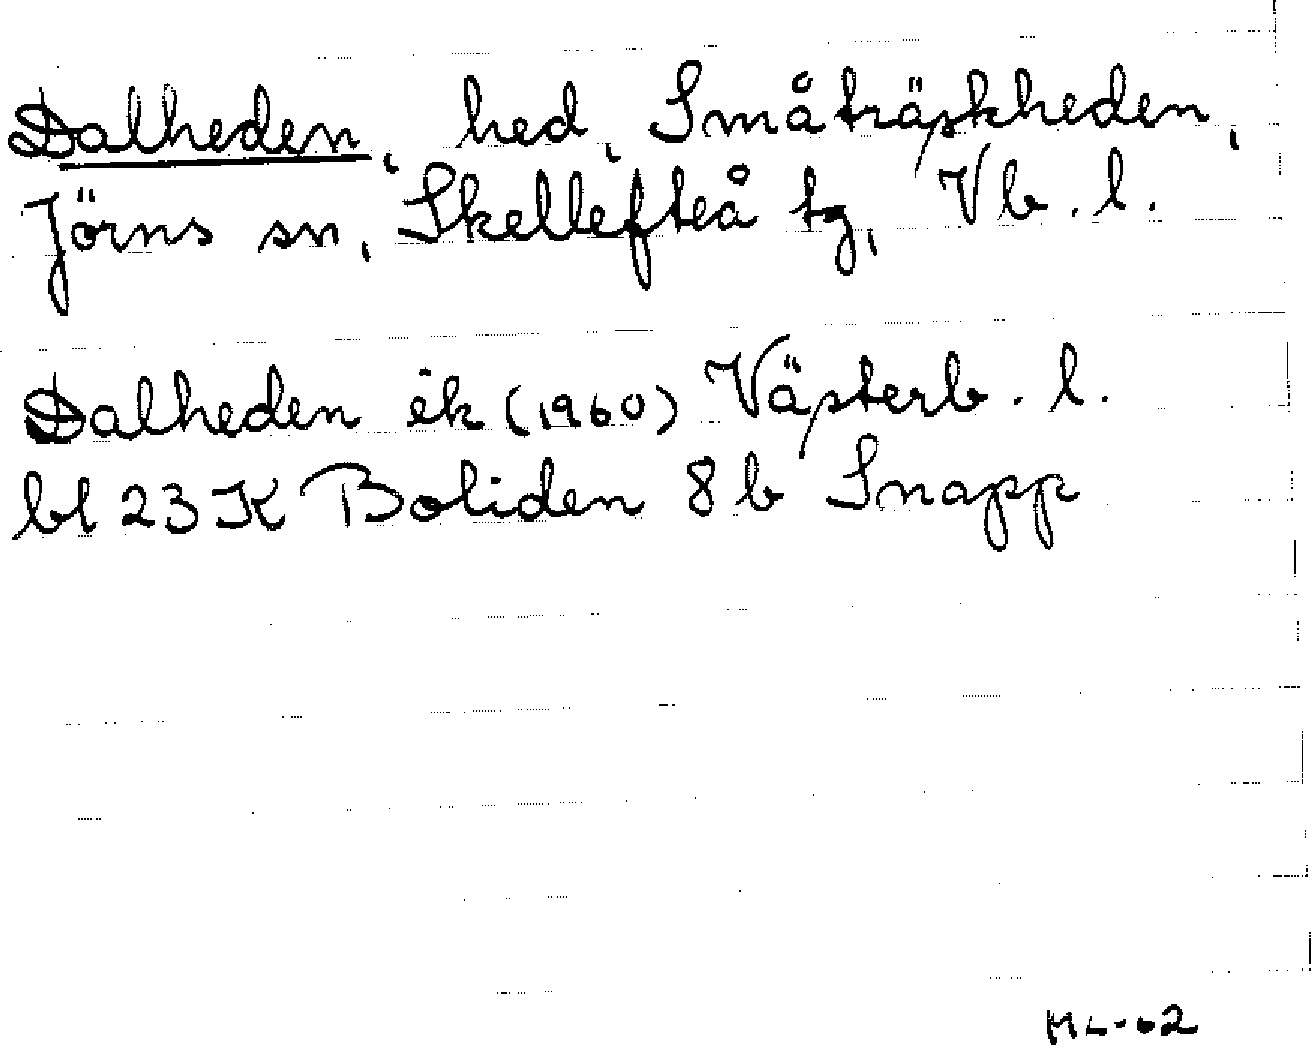 Dalheden, hed, Småträskheden,
Jörns sn, Skellefteå tg, Vb. l.
Dalheden ëk (1960) Västerb. l.
bl 23 K Boliden 8 b Snapp
ML-62